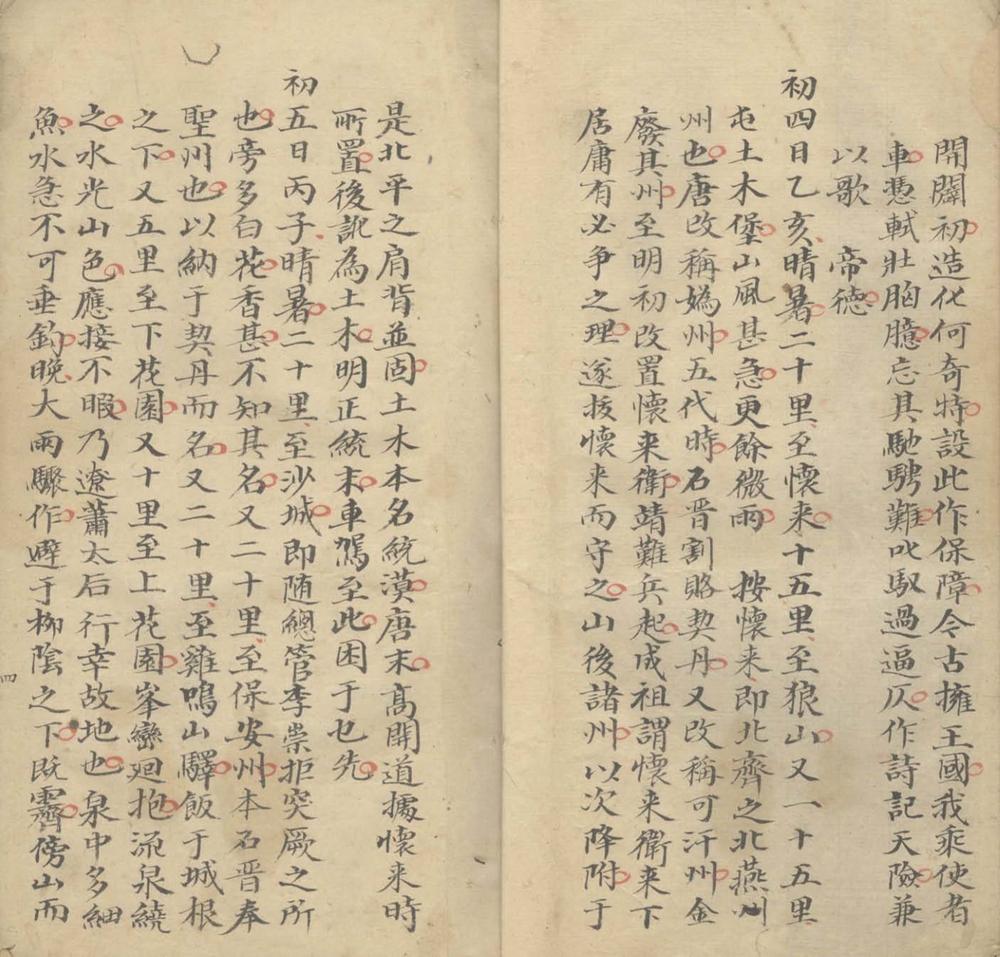 開闢初造化何奇特設此作保障今古擁王國我乘使者
車憑軾壯胸臆忘其馳騁難叱馭過逼仄作詩記天險兼
以歌　帝德
初四日乙亥晴暑二十里至懷来十五里至狼山又一十五里
屯土木堡山風甚急更餘微雨　按懷来即北齊之北燕州
州也唐改稱媯州五代時石晋割賂契丹又改稱可汗州金
廢其州至明初改置懷来衛靖難兵起成祖謂懷来衛来下
居庸有必争之理遂拔懷来而守之山後諸州以次降附于
是北平之肩背並固土木本名統漠唐末髙開道據懷来時
所置後訛為土木明正統末車駕至此困于也先
初五日丙子晴暑二十里至沙城即随總管李崇拒突厥之所
也旁多白花香甚不知其名又二十里至保安州本石晋奉
聖州也以納于契丹而名又二十里至雞鳴山驛飯于城根
之下又五里至下花園又十里至上花園峯巒廻抱流泉繞
之水光山色應接不暇乃遼蕭太后行幸故地也泉中多細
魚水急不可垂釣晚大雨驟作避于柳陰之下既霽傍山而
四